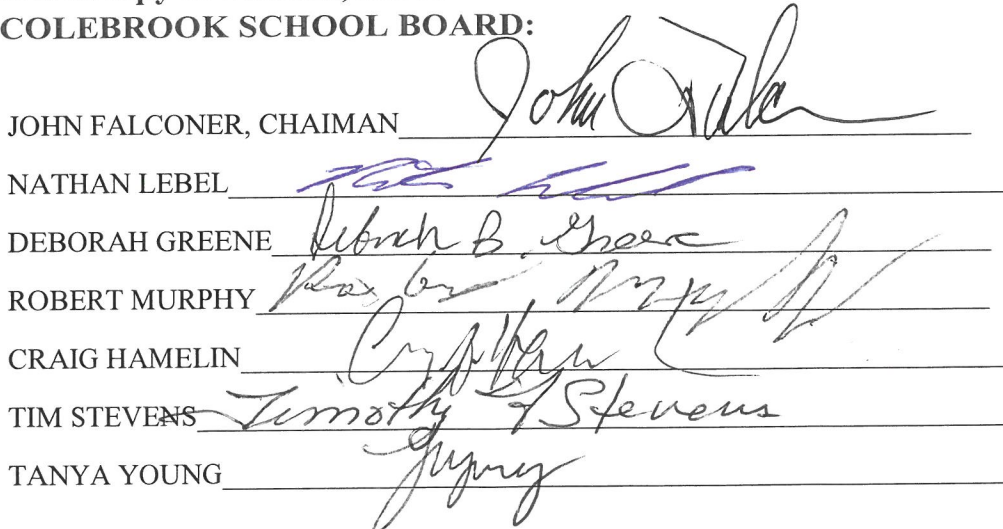 COLEBROOK SCHOOL BOARD:
JOHN FALCONER, CHAIMAN John
NATHAN LEBEL
DEBORAH GREENE Deborah B. Greene
ROBERT MURPHY
CRAIG HAMELIN
TIM STEVENS Timothy Stevens
TANYA YOUNG